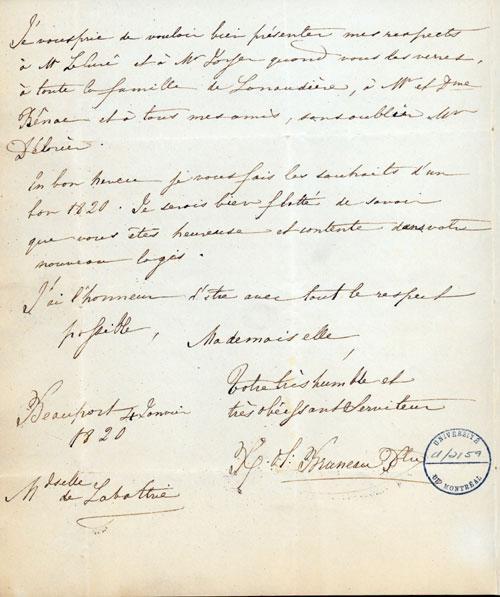 Je vous prie de vouloir bien présenter mes respects
à Mr Le Curé et à Mr Joyer quand vous les verrés,
à toute la famille de Lanaudière, à Mr et Dme
Bénac et à tous mes amis, sans oublier Mr
D'élorier.
En bon neveu je vous fais les souhaits d'un
bon 1820. Je serois bien flatté de savoir
que vous êtes heureuse et contente dans votre
nouveau logis.
J'ai l'honneur d'etre avec tout le respect
possible, Mademoiselle,
Votre très humble et
très obéissant Serviteur
Beauport 4 Janvier
1820
R. S. Bruneau Ptre
Mdselle
de Labaltrie
UNIVERSITÉ
DE MONTRÉAL